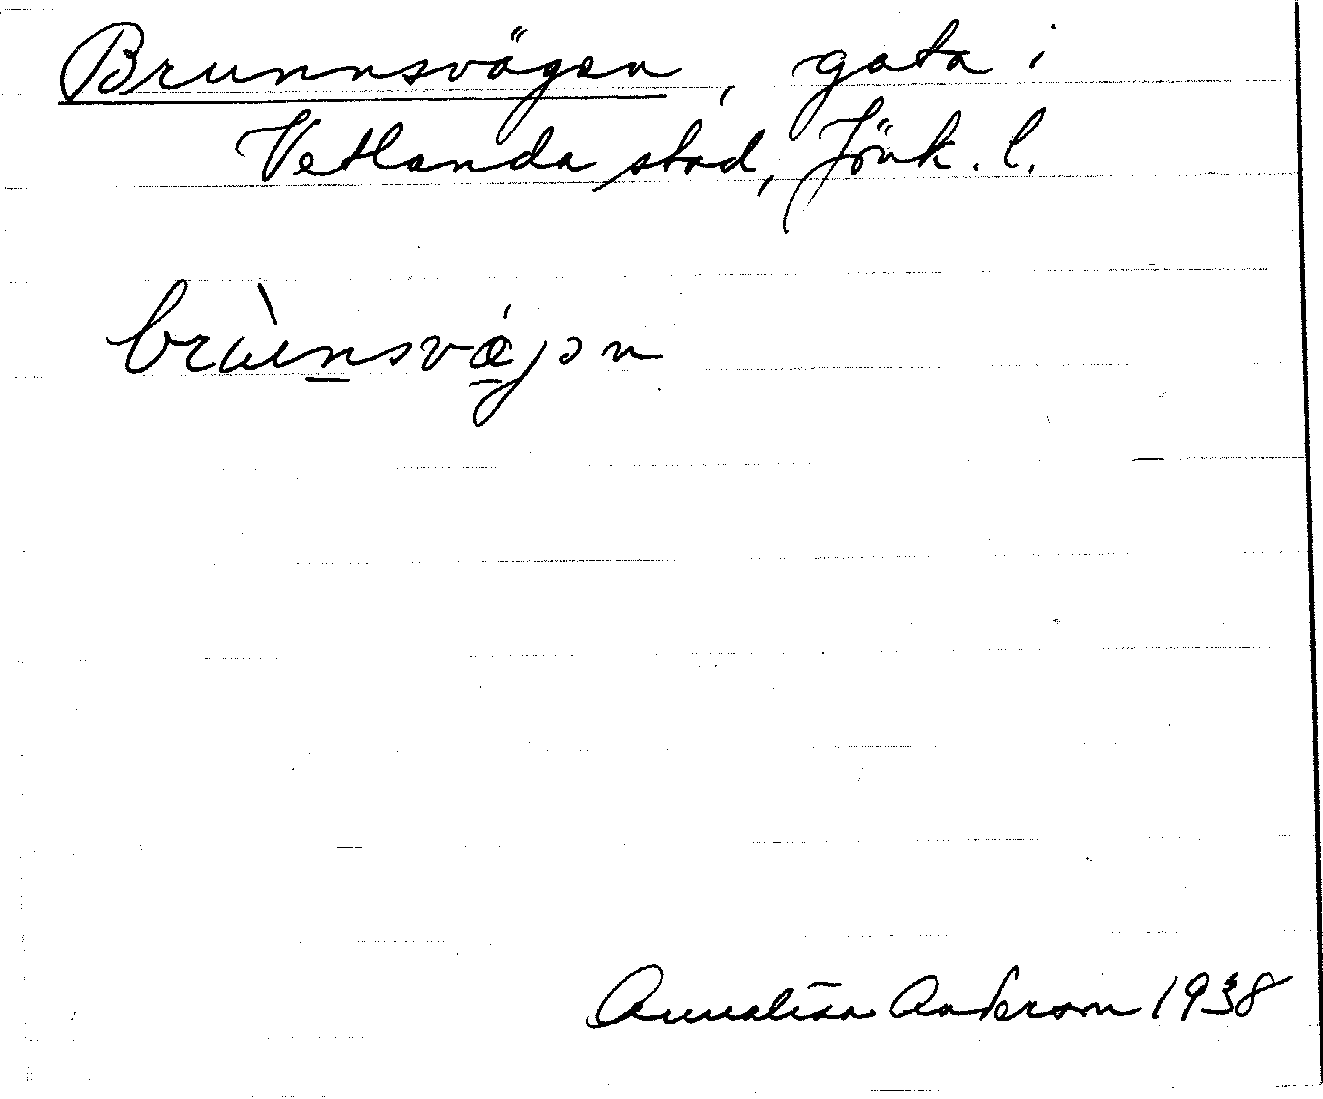 Brunnsvägen, gata i
Vetlanda stad, Jönk. l.
brùnsvǽjən
Annalisa Anderson 1938